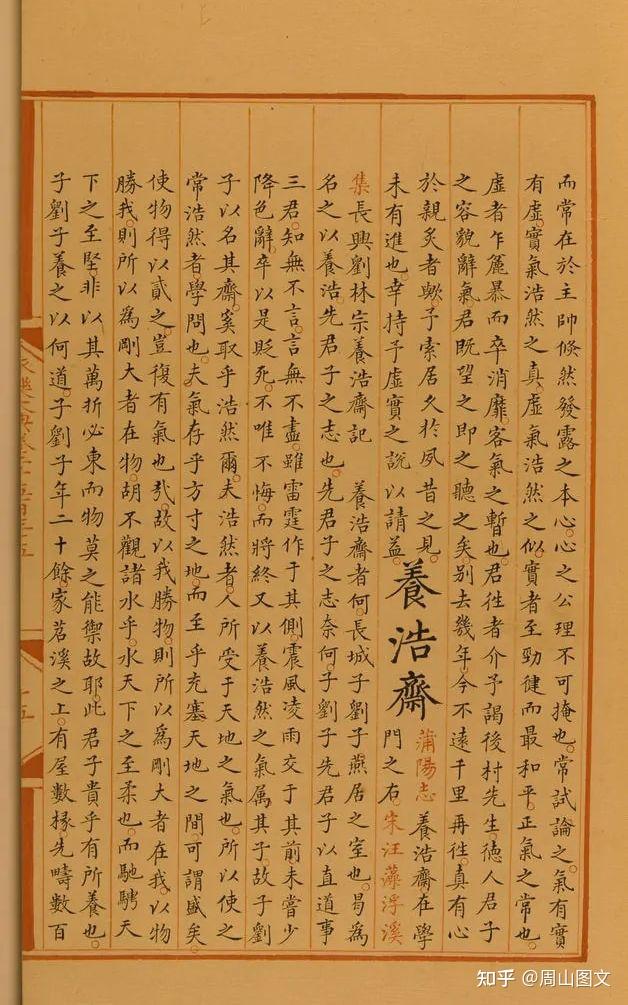 而常在於主帥倐然發露之本心心之公理不可掩也常試論之氣有實
有虛實氣浩然之真虛氣浩然之似實者至勁健而最和平正氣之常也
虛者乍麤暴而卒消靡客氣之暫也君徃者介予謁後村先生德人君子
之容貌辭氣君既望之即之聽之矣別去幾年今不遠千里再徃真有心
於親炙者歟予索居久於夙昔之見
未有進也幸持予虛實之說以請益
養浩齋
蒲陽志養浩齋在學
門之右宋汪藻浮溪
集長興劉林宗養浩齋記 養浩齋者何長城子劉子燕居之室也曷為
名之以養浩先君子之志也先君子之志奈何子劉子先君子以直道事
三君知無不言言無不盡雖雷霆作于其側震風凌雨交于其前未嘗少
降色辭卒以是貶死不唯不悔而將終又以養浩然之氣属其子故子劉
子以名其齋奚取乎浩然爾夫浩然者人所受于天地之氣也所以使之
常浩然者學問也夫氣存乎方寸之地而至乎充塞天地之間可謂盛矣
使物得以貳之豈復有氣也㢤故以我勝物則所以為剛大者在我以物
勝我則所以為剛大者在物胡不觀諸水乎水天下之至柔也而馳騁天
下之至堅非以其萬折必東而物莫之能禦故耶此君子貴乎有所養也
子劉子養之以何道子劉子年二十餘家苕溪之上有屋數椽先疇數百
知乎 @周山图文